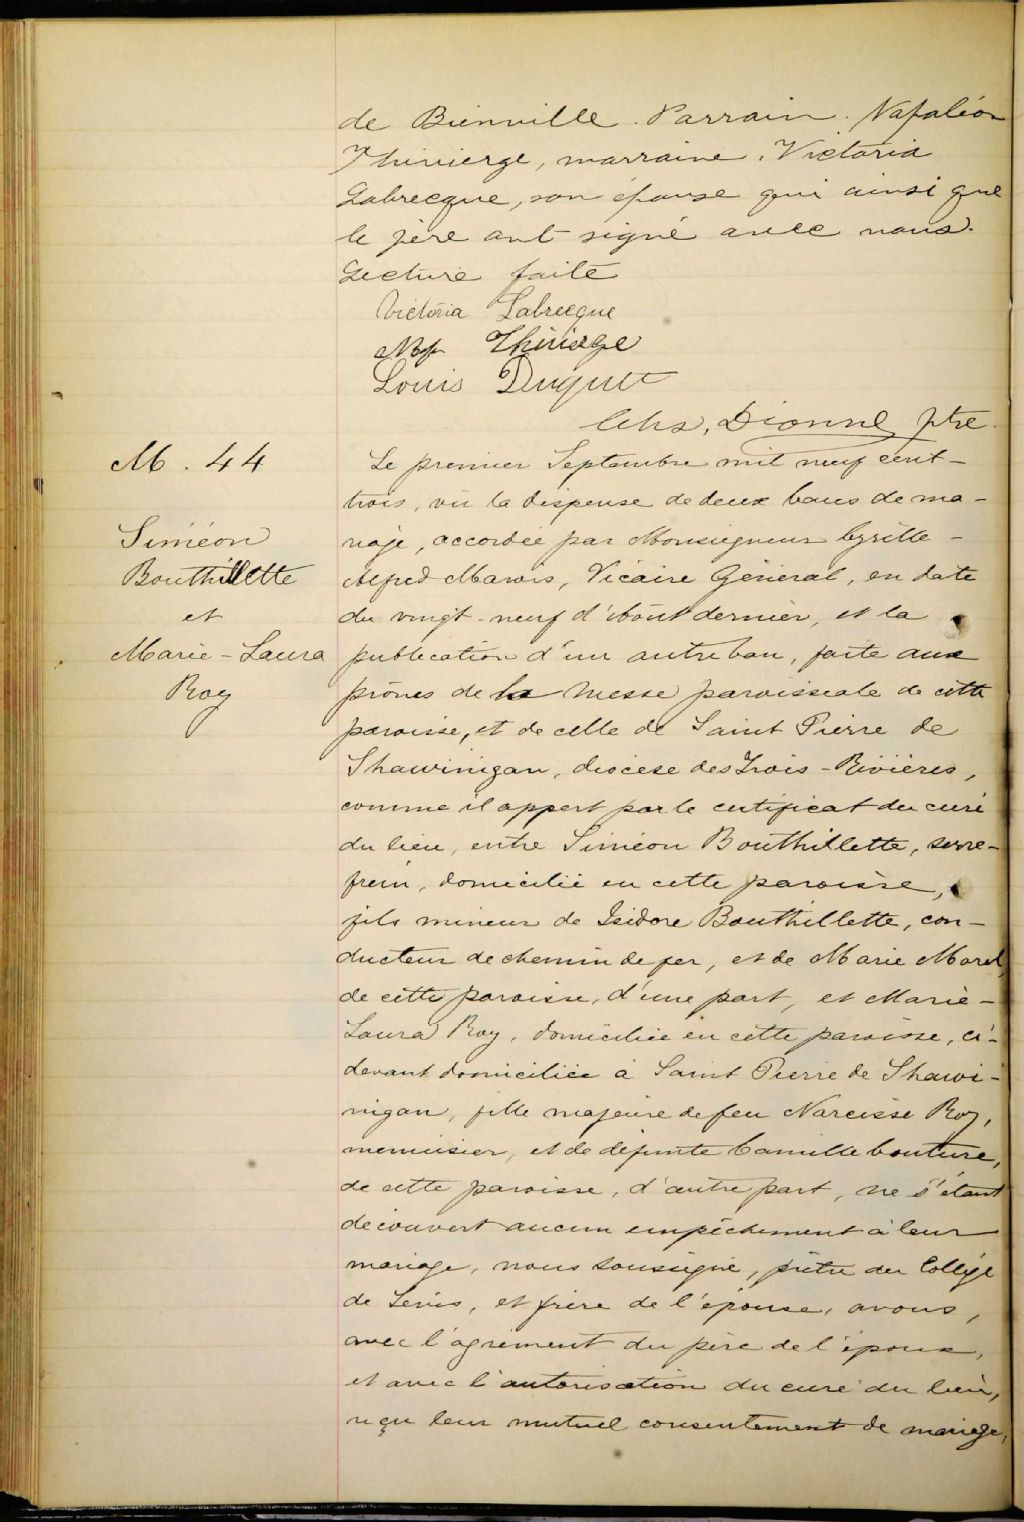 de Bienville. Parrain. Napoléon
Thivierge, marraine. Victoria
Labrecque, son épouse qui ainsi que
le père ont signé avec nous.
Lecture faite
Victoria Labrecque
Nap Thivierge
Louis Duquet
Chs. Dionne ptre.
M. 44
Siméon
Bouthillette
et
Marie-Laura
Roy
Le premier Septembre mil neuf cent-
trois, vu la dispense de deux bans de ma-
riage, accordée par Monseigneur Cyrille-
Alfred Marois, Vicaire Général, en date
du vingt-neuf d'Août dernier, et la
publication d'un autre ban, faite aux
prônes de la Messe paroissiale de cette
paroisse, et de celle de Saint Pierre de
Shawinigan, diocèse des Trois-Rivières,
comme il appert par le certificat du curé
du lieu, entre Siméon Bouthillette, serre-
frein, domicilié en cette paroisse,
fils mineur de Isidore Bouthillette, con-
ducteur de chemin de fer, et de Marie Morel,
de cette paroisse, d'une part, et Marie-
Laura Roy, domiciliée en cette paroisse, ci-
devant domiciliée à Saint Pierre de Shawi-
nigan, fille majeure de feu Narcisse Roy,
menuisier, et de défunte Camille Couture,
de cette paroisse, d'autre part, ne s'étant
découvert aucun empêchement à leur
mariage, nous soussigné, prêtre du Collége
de Lévis, et frère de l'épouse, avons,
avec l'agrément du père de l'époux,
et avec l'autorisation du curé du lieu,
reçu leur mutuel consentement de mariage,